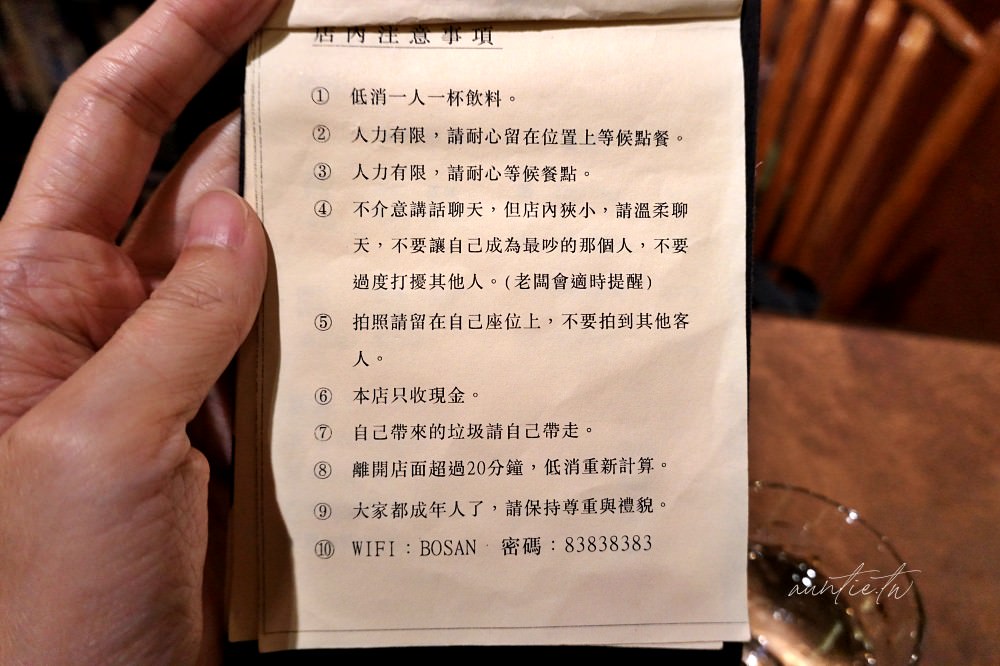 店內注意事項
① 低消一人一杯飲料。
② 人力有限，請耐心留在位置上等候點餐。
③ 人力有限，請耐心等候餐點。
④ 不介意講話聊天，但店內狹小，請溫柔聊
天，不要讓自己成為最吵的那個人，不要
過度打擾其他人。(老闆會適時提醒)
⑤ 拍照請留在自己座位上，不要拍到其他客
人。
⑥ 本店只收現金。
⑦ 自己帶來的垃圾請自己帶走。
⑧ 離開店面超過20分鐘，低消重新計算。
⑨ 大家都成年人了，請保持尊重與禮貌。
⑩ WIFI：BOSAN 密碼：83838383
auntie.tw